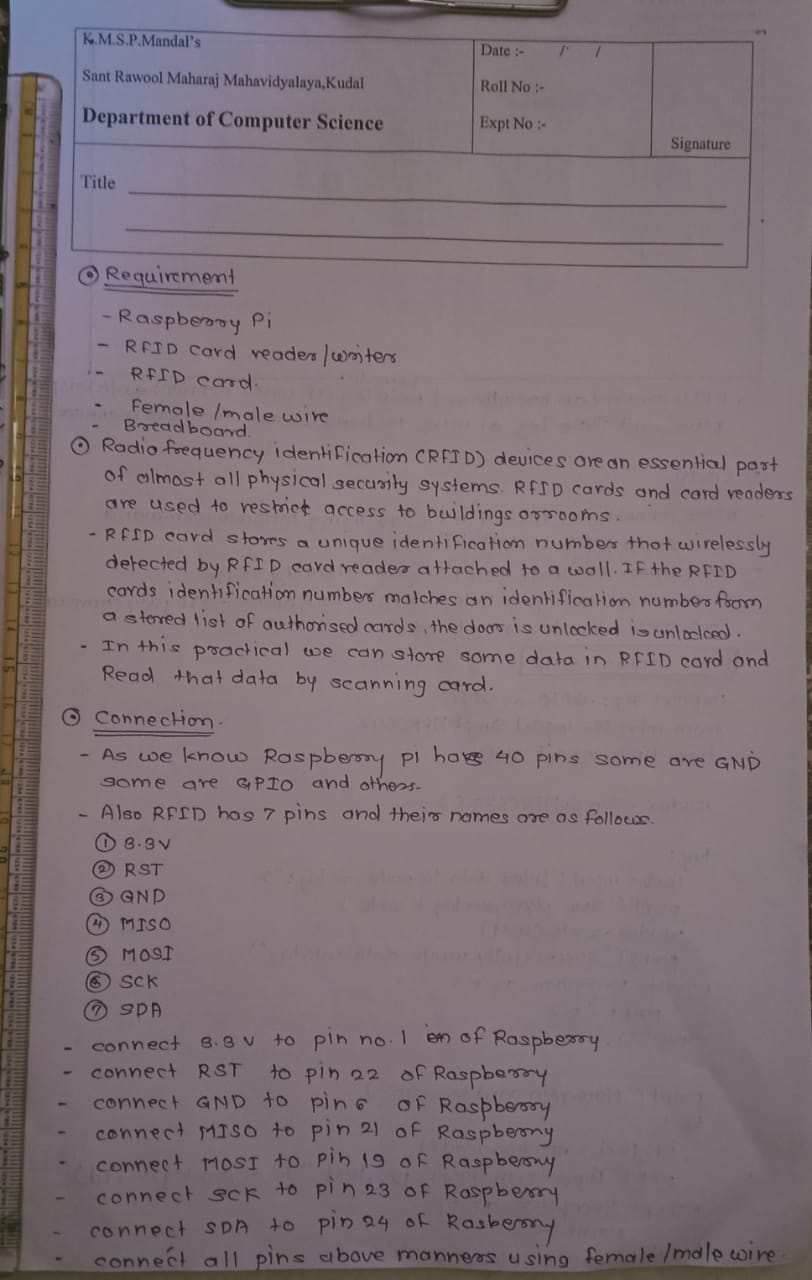 K.M.S.P.Mandal's
Sant Rawool Maharaj Mahavidyalaya,Kudal
Department of Computer Science
Date :- / /
Roll No :-
Expt No :-
Signature
Title
Requirement
- Raspberry Pi
- RFID card reader/writers
- RFID card.
- Female /male wire
- Breadboard.
Radio frequency identification (RFID) devices are an essential part
of almost all physical security systems. RFID cards and card readers
are used to restrict access to buildings or rooms.
- RFID card stores a unique identification number that wirelessly
detected by RFID card reader attached to a wall. IF the RFID
cards identification number matches an identification number from
a stored list of authorised cards, the door is unlocked is unlocked.
- In this practical we can store some data in RFID card and
Read that data by scanning card.
Connection.
- As we know Raspberry pi have 40 pins some are GND
some are GPIO and others.
- Also RFID has 7 pins and their names are as follows.
① 3.3V
② RST
③ GND
④ MISO
⑤ MOSI
⑥ SCK
⑦ SDA
- connect 3.3 V to pin no. 1 of Raspberry
- connect RST to pin 22 of Raspberry
- connect GND to pin 6 of Raspberry
- connect MISO to pin 21 of Raspberry
- connect MOSI to pin 19 of Raspberry
- connect SCK to pin 23 of Raspberry
- connect SDA to pin 24 of Rasberry
- connect all pins above manners using female/male wire